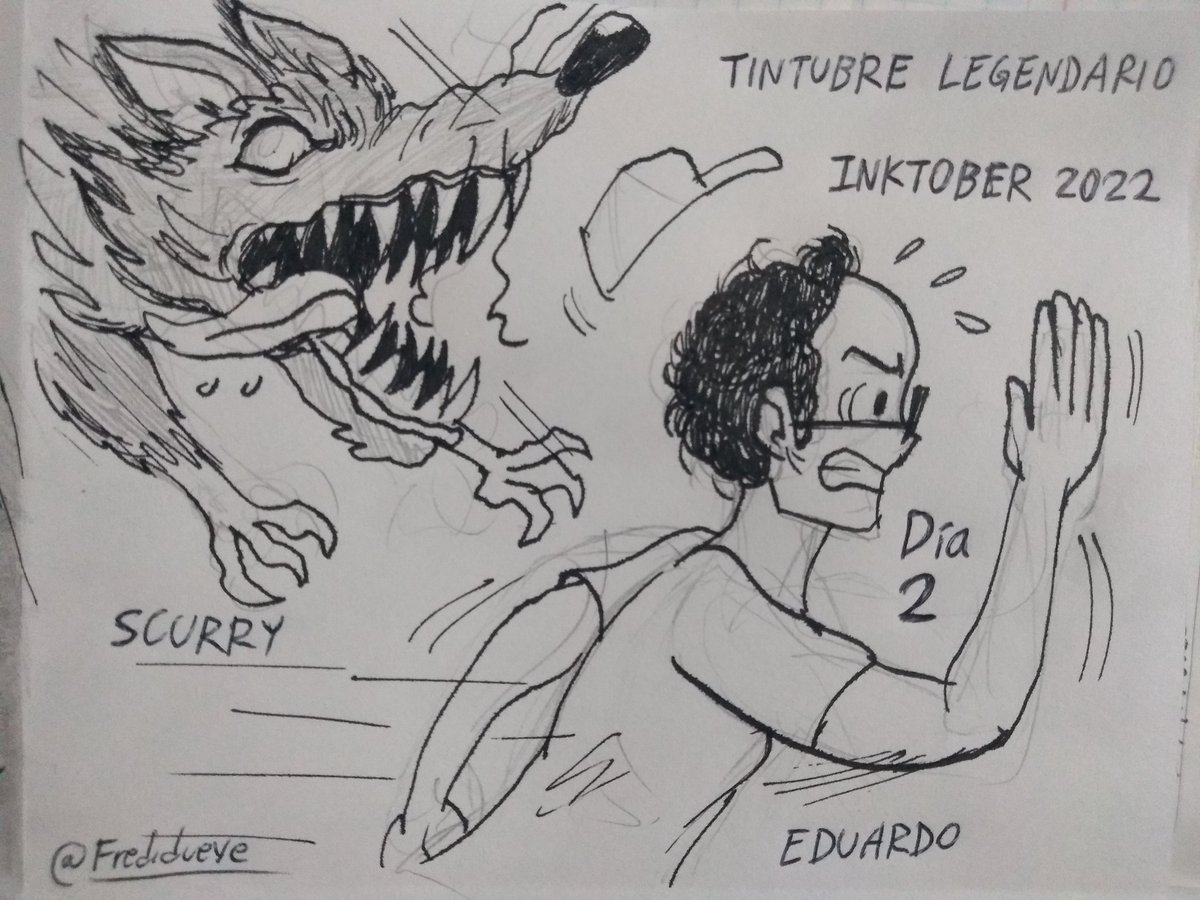 TINTUBRE LEGENDARIO
INKTOBER 2022
Día
2
SCURRY
EDUARDO
@Fredidueye